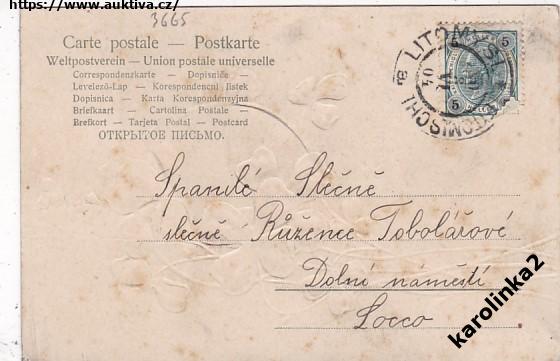 https://www.auktiva.cz/
3665
Carte postale — Postkarte
Weltpostverein — Union postale universelle
Correspondenzkarte - Dopisnice -
Levelező-Lap - Korespondencni listek
Dopisnica - Karta Korespondenzyjna
Briefkaart - Cartolina Postale -
Brefkort - Tarjeta Postal - Postcard
ОТКРЫТОЕ ПИСЬМО.
LITOMYŠL
5 5
5
04
LEITOMISCHL
Spanilé Slečně
slečně Růžence Tobolářové
Dolní náměstí
Locco
karolinka2